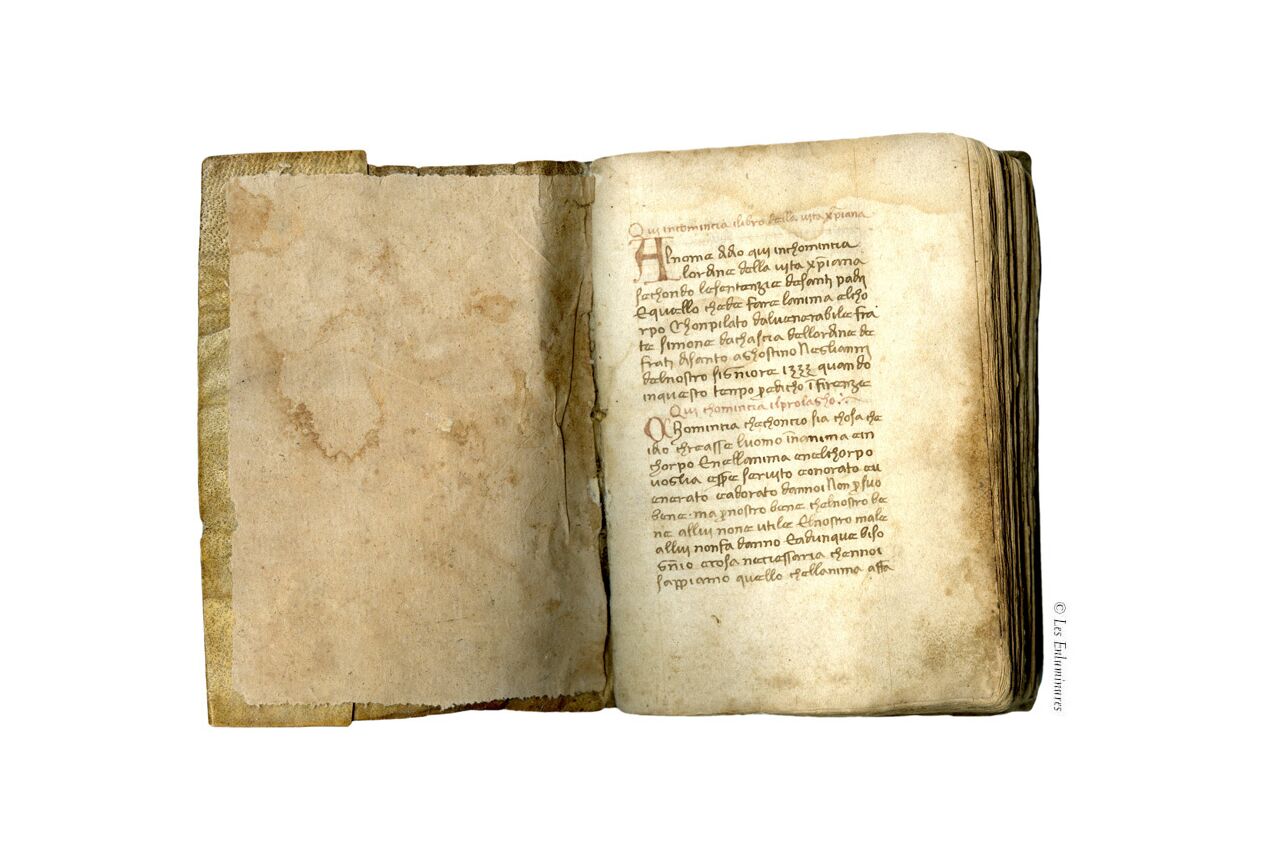 Qui incomincia ilibro della uita xp̄iana
Al nome ddio qui inchomincia
lordine della uita xp̄iana
sechondo lesentenzie desanti padri
Equello chede fare lanima elcho
rpo Chonpilato daluenerabile fra
te simone dachascia dellordine de
frati disanto aghostino Negli anni
delnostro singniore 1333 quando
inquesto tenpo predicho ī firenze
Qui chomincia ilprolagho
Chomincia chechoncio sia chosa che
idio chreasse luomo inanima ein
chorpo Enellanima enelchorpo
voglia essere seruito eonorato eu
enerato eadorato dannoi Non ꝑ suo
bene · ma ꝑ nostro bene chelnostro be
ne allui none utile Elnostro male
allui nonfa danno Eadunque biso
gnio ecosa necessaria chennoi
sappiamo quello chellanima affa
© Les Enluminures